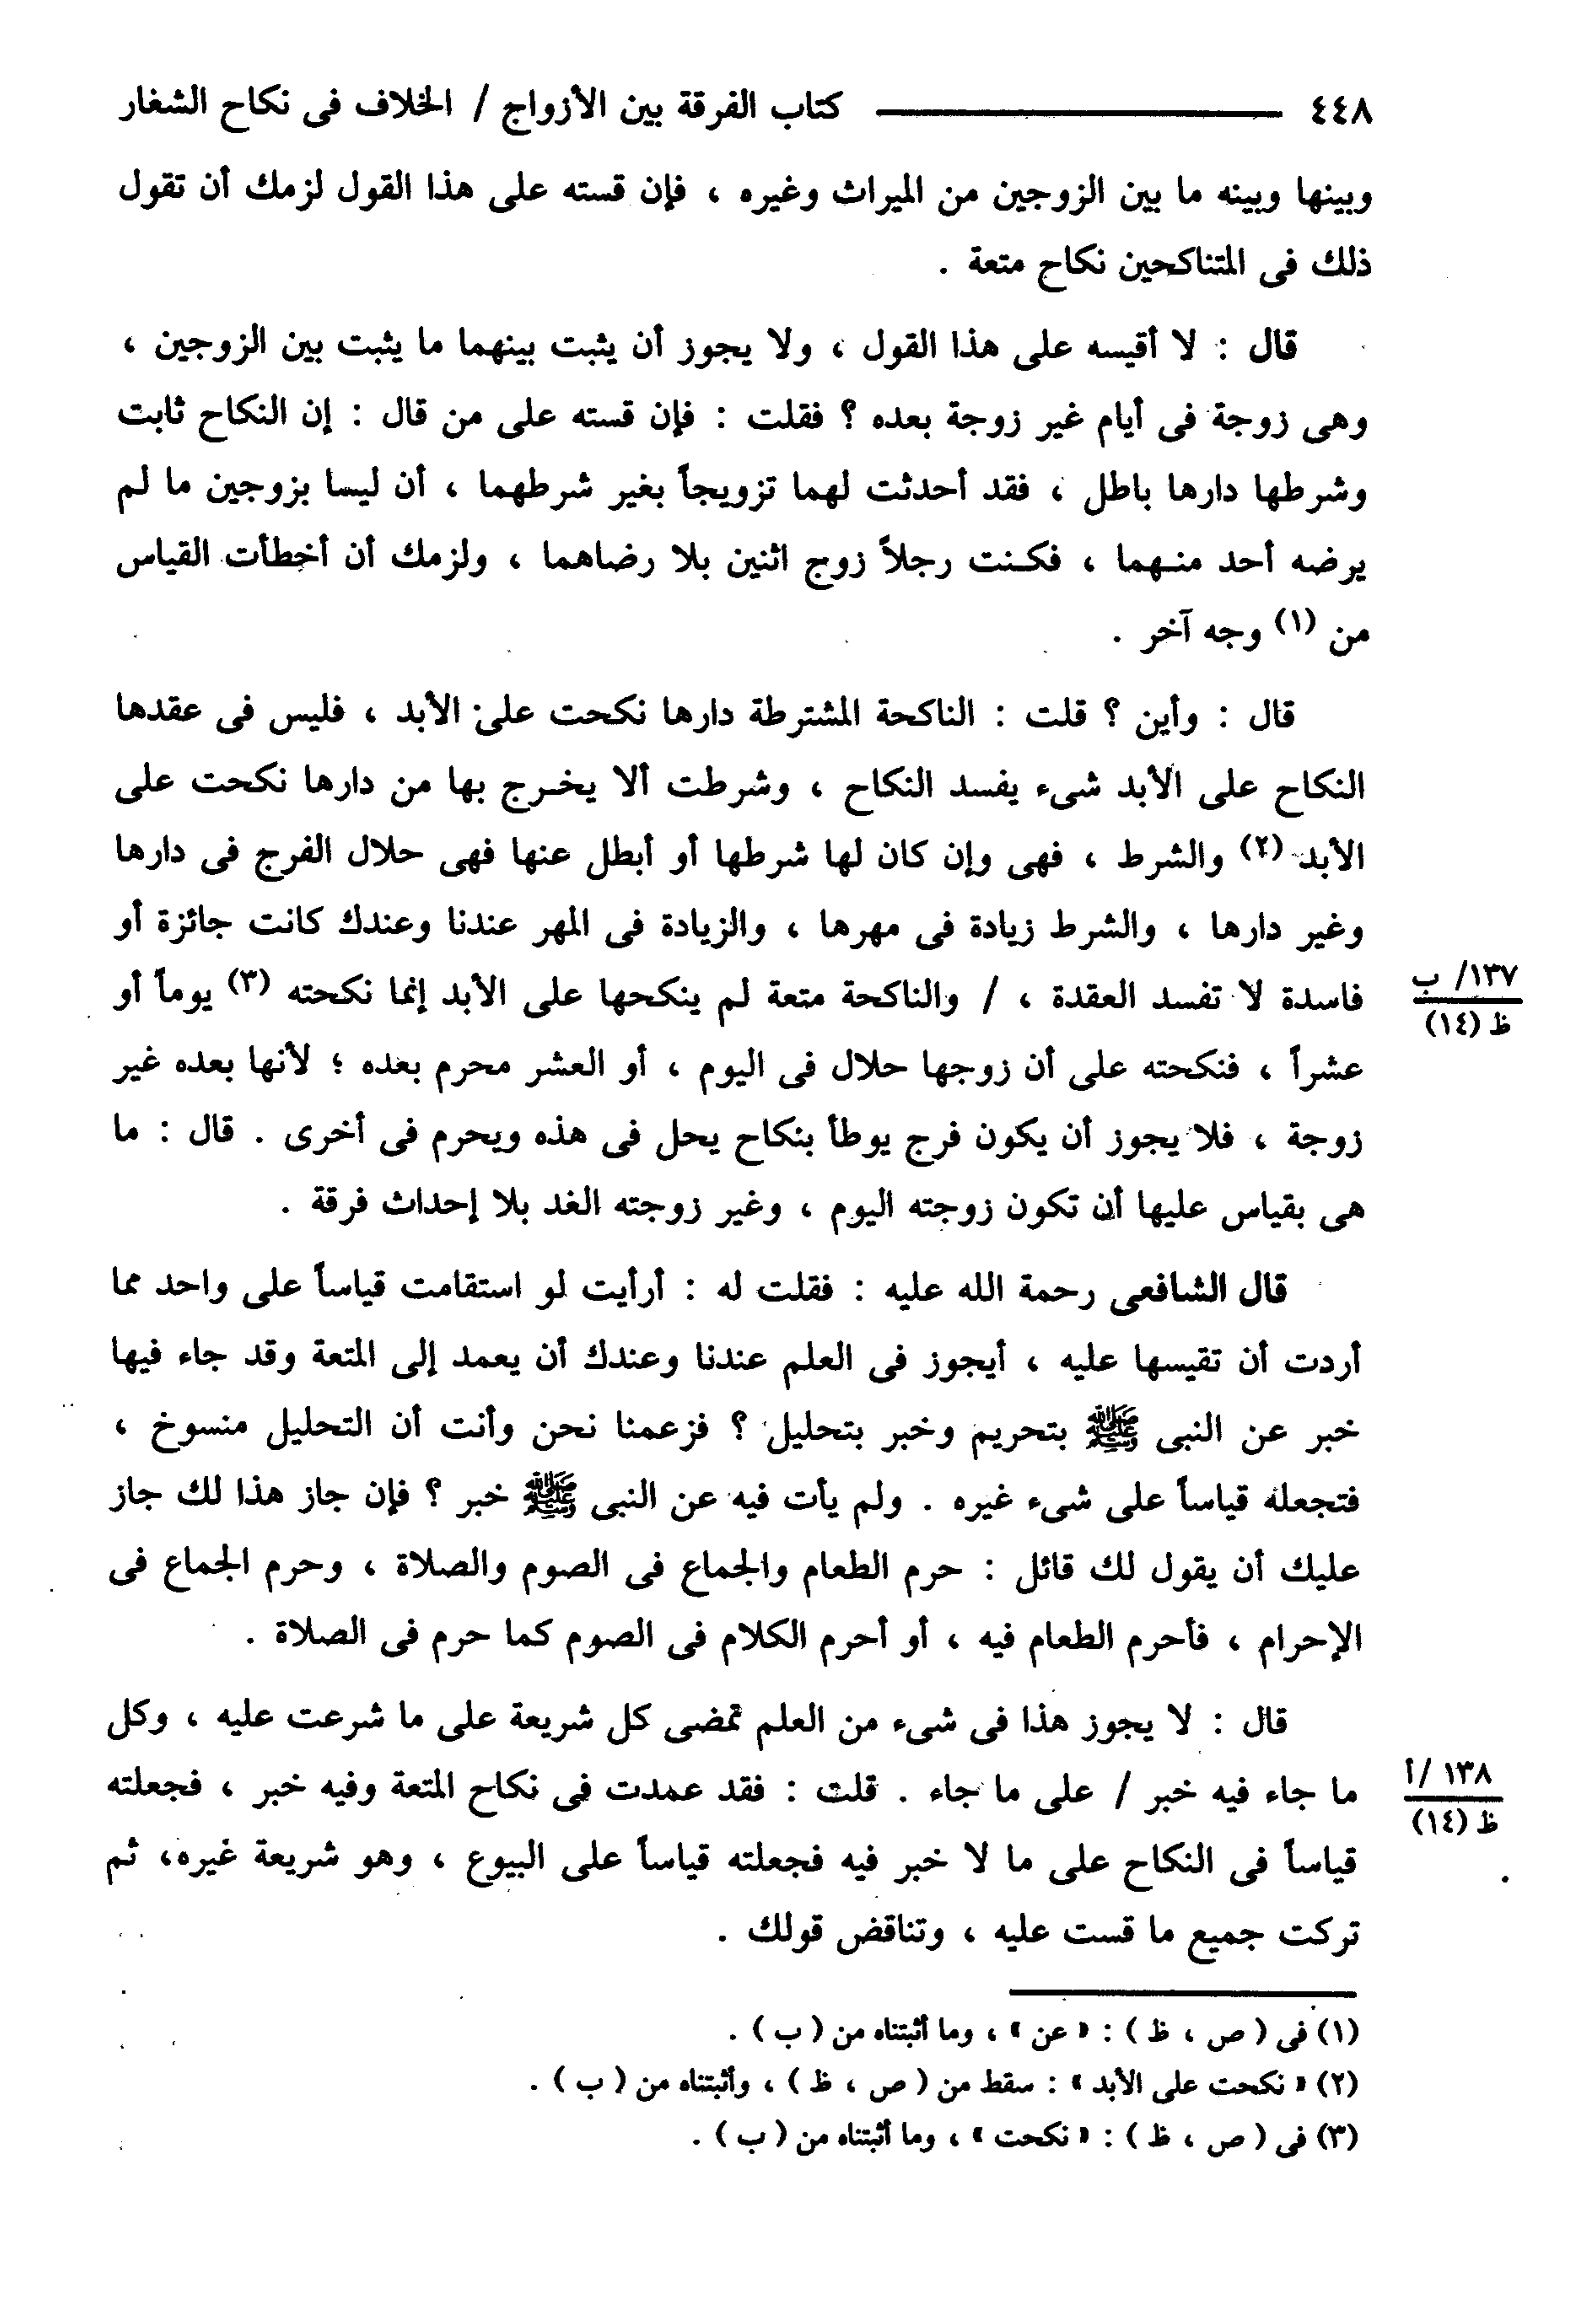 ٤٤٨ كتاب الفرقة بين الأزواج / الخلاف فى نكاح الشغار
وبينها وبينه ما بين الزوجين من الميراث وغيره ، فإن قسته على هذا القول لزمك أن تقول
ذلك فى المتناكحين نكاح متعة .
قال : لا أقيسه على هذا القول ، ولا يجوز أن يثبت بينهما ما يثبت بين الزوجين ،
وهى زوجة فى أيام غير زوجة بعده ؟ فقلت : فإن قسته على من قال : إن النكاح ثابت
وشرطها دارها باطل ، فقد أحدثت لهما تزويجاً بغير شرطهما ، أن ليسا بزوجين ما لم
يرضه أحد منهما ، فكنت رجلاً زوج اثنين بلا رضاهما ، ولزمك أن أخطأت القياس
من (١) وجه آخر .
قال : وأين ؟ قلت : الناكحة المشترطة دارها نكحت على الأبد ، فليس فى عقدها
النكاح على الأبد شىء يفسد النكاح ، وشرطت ألا يخرج بها من دارها نكحت على
الأبد (٢) والشرط ، فهى وإن كان لها شرطها أو أبطل عنها فهى حلال الفرج فى دارها
وغير دارها ، والشرط زيادة فى مهرها ، والزيادة فى المهر عندنا وعندك كانت جائزة أو
فاسدة لا تفسد العقدة ، / والناكحة متعة لم ينكحها على الأبد إنما نكحته (٣) يوماً أو
١٣٧/ ب
ظ (١٤)
عشراً ، فنكحته على أن زوجها حلال فى اليوم ، أو العشر محرم بعده ؛ لأنها بعده غير
زوجة ، فلا يجوز أن يكون فرج يوطأ بنكاح يحل فى هذه ويحرم فى أخرى . قال : ما
هى بقياس عليها أن تكون زوجته اليوم ، وغير زوجته الغد بلا إحداث فرقة .
قال الشافعى رحمة الله عليه : فقلت له : أرأيت لو استقامت قياساً على واحد مما
أردت أن تقيسها عليه ، أيجوز فى العلم عندنا وعندك أن يعمد إلى المتعة وقد جاء فيها
خبر عن النبى ﷺ بتحريم وخبر بتحليل ؟ فزعمنا نحن وأنت أن التحليل منسوخ ،
فتجعله قياساً على شىء غيره . ولم يأت فيه عن النبى ﷺ خبر ؟ فإن جاز هذا لك جاز
عليك أن يقول لك قائل : حرم الطعام والجماع فى الصوم والصلاة ، وحرم الجماع فى
الإحرام ، فأحرم الطعام فيه ، أو أحرم الكلام فى الصوم كما حرم فى الصلاة .
قال : لا يجوز هذا فى شىء من العلم تمضى كل شريعة على ما شرعت عليه ، وكل
ما جاء فيه خبر / على ما جاء . قلت : فقد عمدت فى نكاح المتعة وفيه خبر ، فجعلته
١٣٨ /أ
ظ (١٤)
قياساً فى النكاح على ما لا خبر فيه فجعلته قياساً على البيوع ، وهو شريعة غيره، ثم
تركت جميع ما قست عليه ، وتناقض قولك .
(١) فى ( ص ، ظ ) : « عن » ، وما أثبتناه من ( ب ) .
(٢) « نكحت على الأبد » : سقط من ( ص ، ظ ) ، وأثبتناه من ( ب ) .
(٣) فى ( ص ، ظ ) : « نكحت » ، وما أثبتناه من ( ب ) .